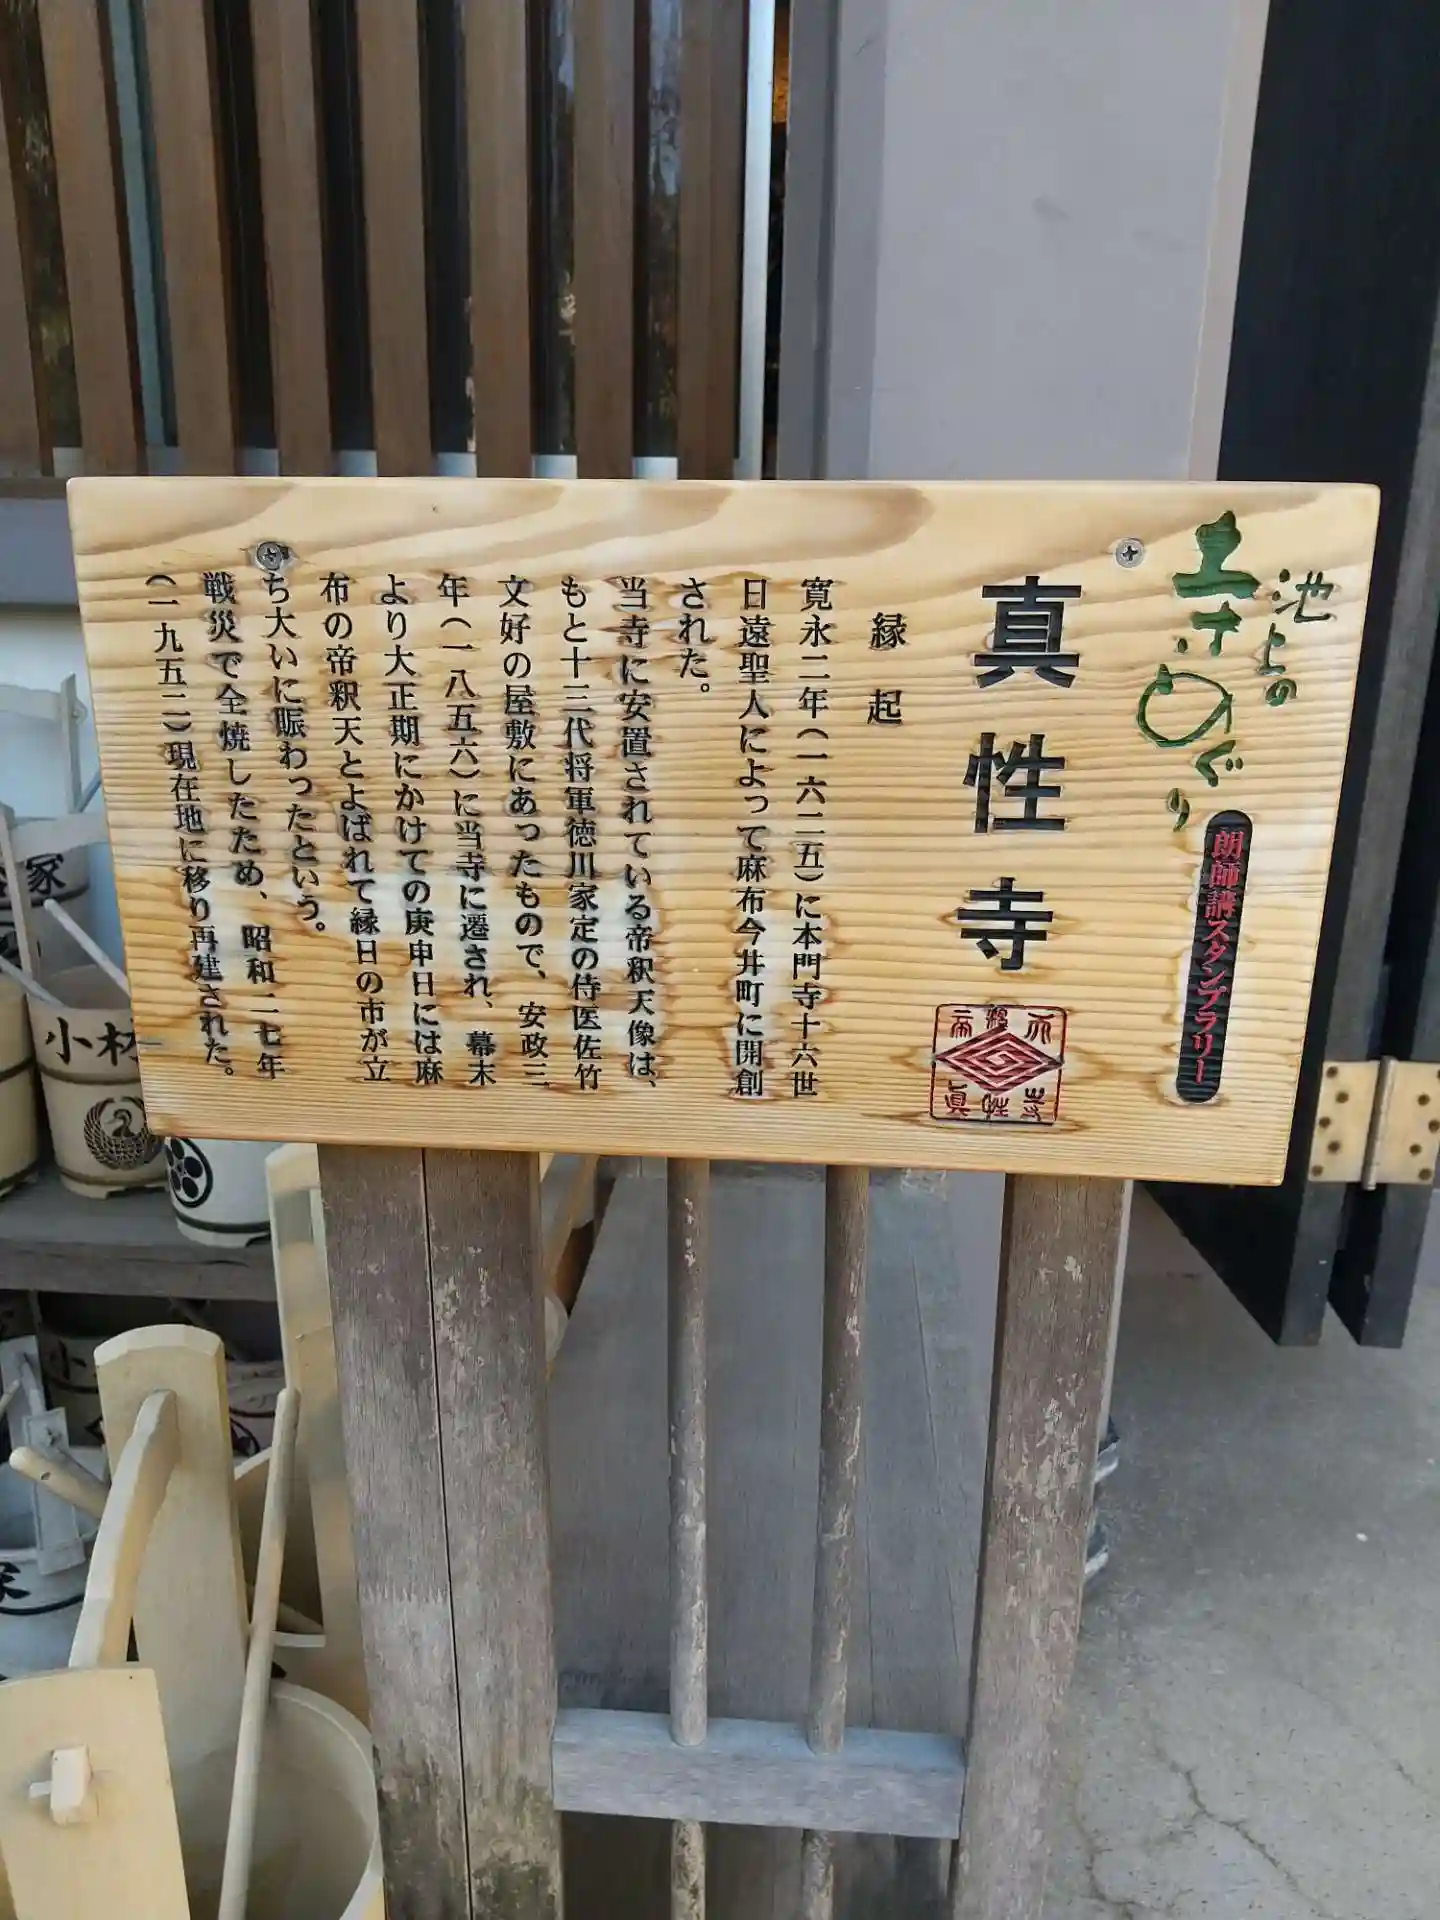 池上の
寺めぐり
朗師講スタンプラリー
真性寺
縁起
寛永二年(一六二五)に本門寺十六世
日遠聖人によって麻布今井町に開創
された。
当寺に安置されている帝釈天像は、
もと十三代将軍徳川家定の侍医佐竹
文好の屋敷にあったもので、安政三
年(一八五六)に当寺に遷され、幕末
より大正期にかけての庚申日には麻
布の帝釈天とよばれて縁日の市が立
ち大いに賑わったという。
戦災で全焼したため、昭和二七年
(一九五二)現在地に移り再建された。
小林
家